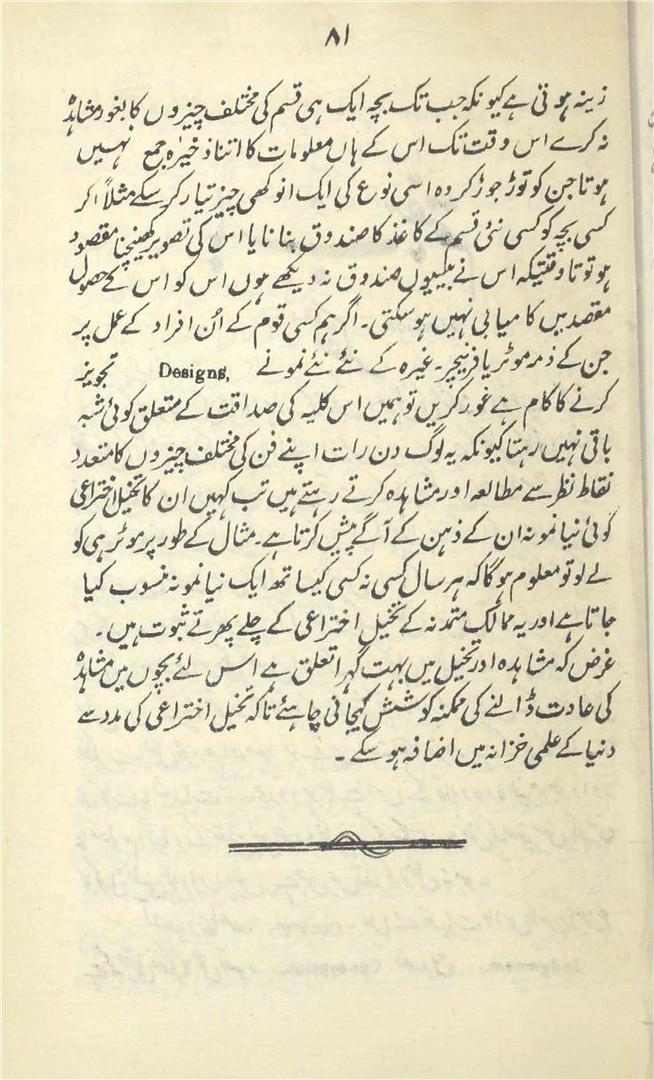 ۸۱
زینہ ہوتی ہے کیونکہ جب تک بچہ ایک ہی قسم کی مختلف چیزوں کا بغور مشاہدہ
نہ کرے اس وقت تک اس کے ہاں معلومات کا اتنا ذخیرہ جمع نہیں
ہوتا جن کو توڑ جوڑ کر وہ اسی نوع کی ایک انوکھی چیز تیار کر سکے مثلاً اگر
کسی بچہ کو کسی نئی قسم کے کاغذ کا صندوق بنانا یا اس کی تصویر کھینچنا مقصود
ہو تو تاوقتیکہ اس نے بیسیوں صندوق نہ دیکھے ہوں اس کو اس کے حصول
مقصد میں کامیابی نہیں ہو سکتی۔ اگر ہم کسی قوم کے اُن افراد کے عمل پر
جن کے ذمہ موٹر یا فرنیچر۔ غیرہ کے نئے نئے نمونے Designs, تجویز
کرنے کا کام ہے غور کریں تو ہمیں اس کلیہ کی صداقت کے متعلق کوئی شبہ
باقی نہیں رہتا کیونکہ یہ لوگ دن رات اپنے فن کی مختلف چیزوں کا متعدد
نقاط نظر سے مطالعہ اور مشاہدہ کرتے رہتے ہیں تب کہیں ان کا تخیل اختراعی
کوئی نیا نمونہ ان کے ذہن کے آگے پیش کرتا ہے۔ مثال کے طور پر موٹر ہی کو
لے لو تو معلوم ہو گا کہ ہر سال کسی نہ کسی کیساتھ ایک نیا نمونہ منسوب کیا
جاتا ہے اور یہ ممالک متمدنہ کے تخیل اختراعی کے چلے پھرتے ثبوت ہیں۔
غرض کہ مشاہدہ اور تخیل میں بہت گہرا تعلق ہے اس لئے بچوں میں مشاہدہ
کی عادت ڈالنے کی ممکنہ کوشش کیجانی چاہئے تاکہ تخیل اختراعی کی مدد سے
دنیا کے علمی خزانہ میں اضافہ ہو سکے۔